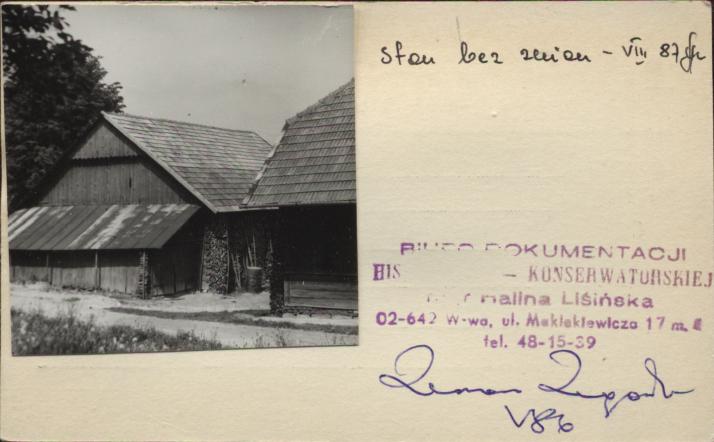 Stan bez zmian - VIII 87
BIURO DOKUMENTACJI
HIS - KONSERWATORSKIEJ
Halina Lisińska
02-642 W-wa, ul. Maklakiewicza 17 m.
tel. 48-15-39
V 86